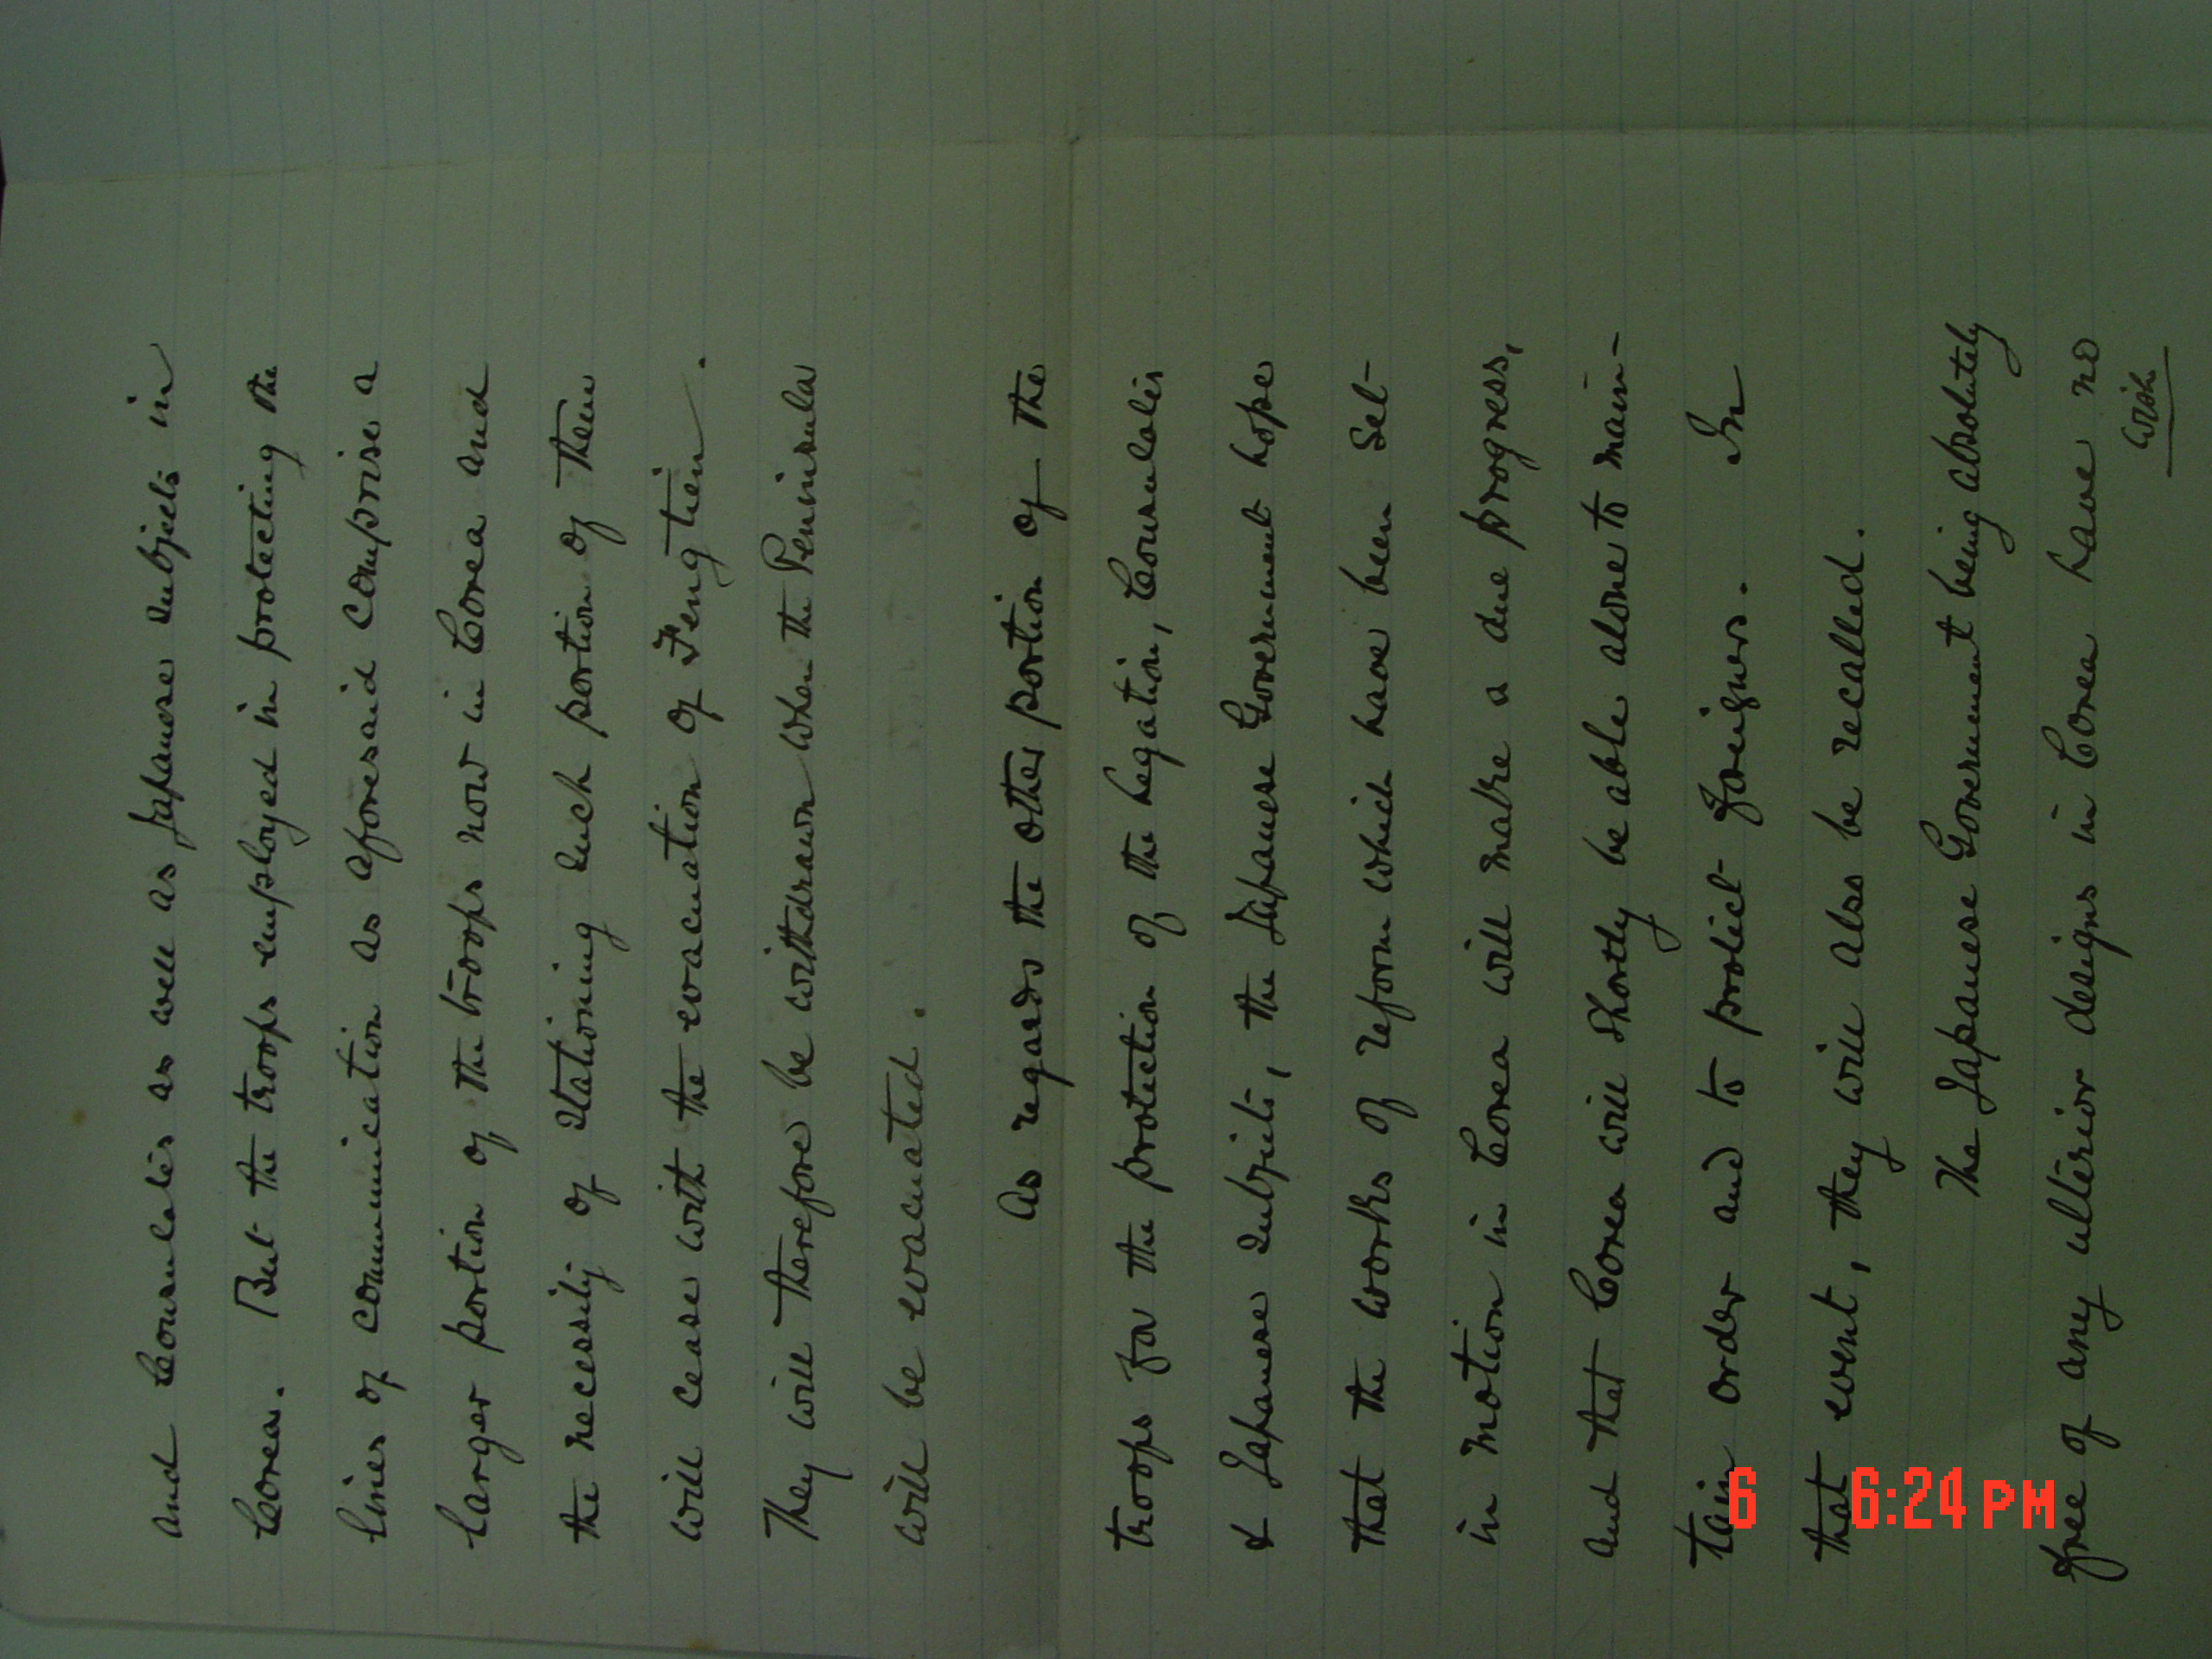 and Consulates as well as Japanese subjects in
Corea. But the troops employed in protecting the
lines of communication as aforesaid comprise a
larger portion of the troops now in Corea and
the necessity of stationing such portion of them
will cease with the evacuation of Fengtien.
They will therefore be withdrawn when the Peninsula
will be evacuated.
As regards the other portion of the
troops for the protection of the Legation, Consulates
& Japanese subjects, the Japanese Government hope
that the works of reform which have been set
in motion in Corea will make a due progress,
and that Corea will shortly be able alone to main-
tain order and to protect foreigners. In
that event, they will also be recalled.
The Japanese Government being absolutely
free of any ulterior designs in Corea have no
wish
6 6:24 PM